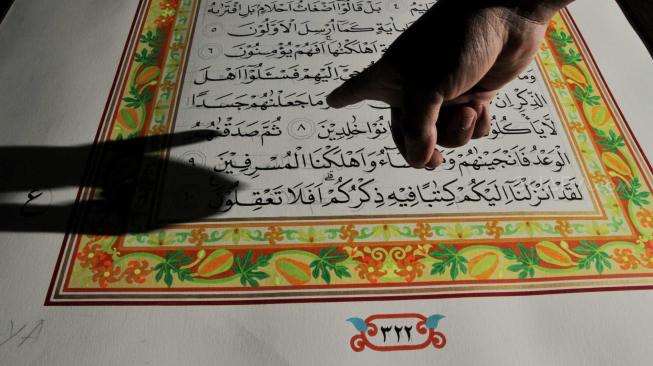 بَلْ قَالُوْٓا اَضْغَاثُ اَحْلَامٍۢ بَلِ افْتَرٰىهُ
بِاٰيَةٍ كَمَآ اُرْسِلَ الْاَوَّلُوْنَ ٥
اَهْلَكْنٰهَا اَفَهُمْ يُؤْمِنُوْنَ ٦
اِلَيْهِمْ فَسْـَٔلُوْٓا اَهْلَ
الذِّكْرِ اِنْ وَمَا جَعَلْنٰهُمْ جَسَدًا
لَّا يَأْكُلُوْنَ كَانُوْا خٰلِدِيْنَ ٨ ثُمَّ صَدَقْنٰهُمُ
الْوَعْدَ فَاَنْجَيْنٰهُمْ وَمَنْ نَّشَاۤءُ وَاَهْلَكْنَا الْمُسْرِفِيْنَ ٩
لَقَدْ اَنْزَلْنَآ اِلَيْكُمْ كِتٰبًا فِيْهِ ذِكْرُكُمْۗ اَفَلَا تَعْقِلُوْنَ ١٠
ع
٣٢٢
YA